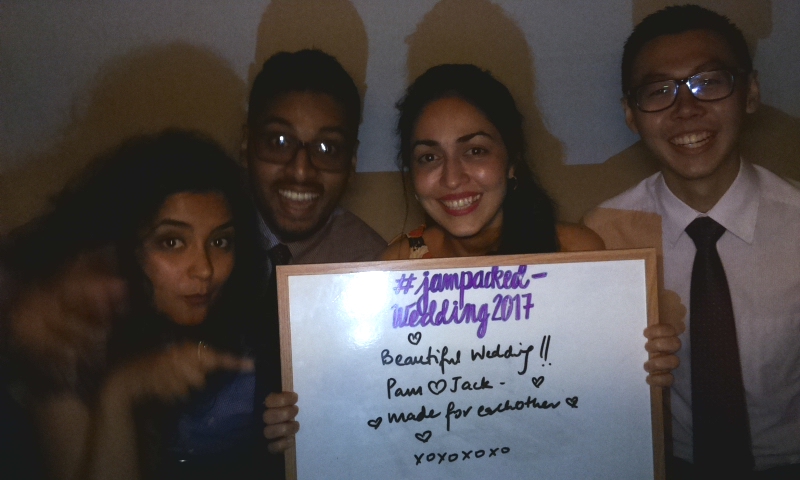 #jampacked-
Wedding2017
Beautiful Wedding!!
Pam ♡ Jack -
♡ made for eachother ♡
xoxoxoxo